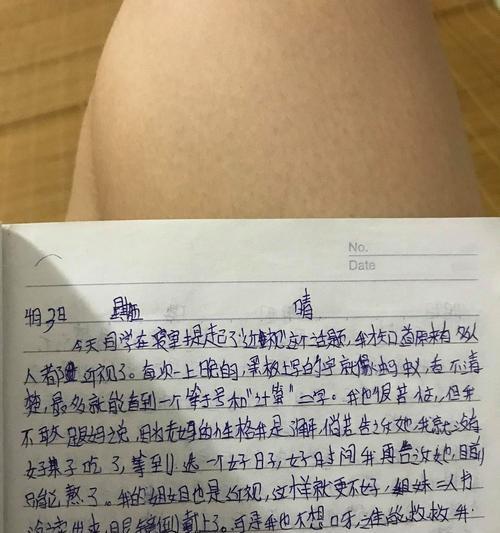 No.
Date
4月3日 星期 晴
今天同学在寝室提起了"近视"这个话题,我才知道原来有多少
人都近视了。每次一上晚的,黑板上写的字就像蚂蚁,看不清
楚,最多就能看到一个等于号和"计算"二字。我也很苦恼,但我
不敢跟妈妈说,因为老妈的性格我是了解,倘若告诉她,我就没有
好果子吃了,等到选一个好日子,好时间我再告诉她,目前
只能忍熬了。我的姐姐也是近视,这样就更不好,姐妹二人
出来,眼镜倒戴上了。可是我也不想呀,谁能救救我